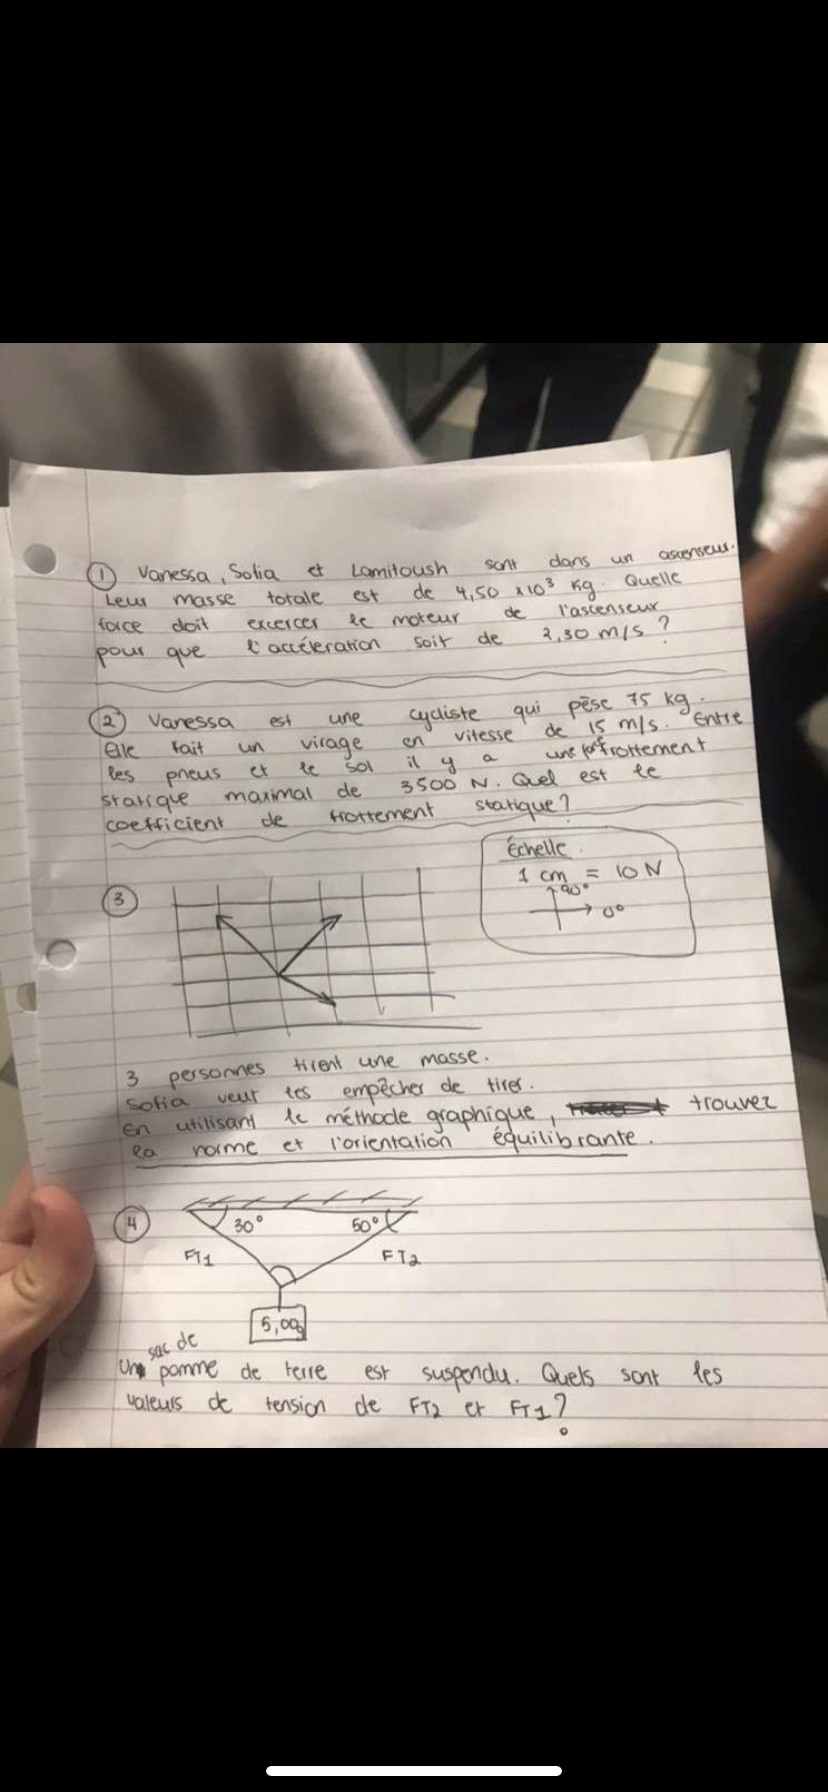 ① Vanessa, Sofia et Lamitoush sont dans un ascenseur.
Leur masse totale est de 4,50 x10³ kg. Quelle
force doit excercer le moteur de l'ascenseur
pour que l'accéleration soit de 2,30 m/s ?
② Vanessa est une cycliste qui pèse 75 kg.
Elle fait un virage en vitesse de 15 m/s. Entre
les pneus et le sol il y a une frottement
statique maximal de 3500 N. Quel est le
coefficient de frottement statique?
Échelle.
1 cm = 10 N
90°
0°
③
3 personnes tirent une masse.
Sofia veut les empêcher de tirer.
En utilisant le méthode graphique, trouvez
la norme et l'orientation équilibrante.
④
30° 50°
FT1 FT2
5,00g
sac de
Un pomme de terre est suspendu. Quels sont les
valeurs de tension de FT2 et FT1?